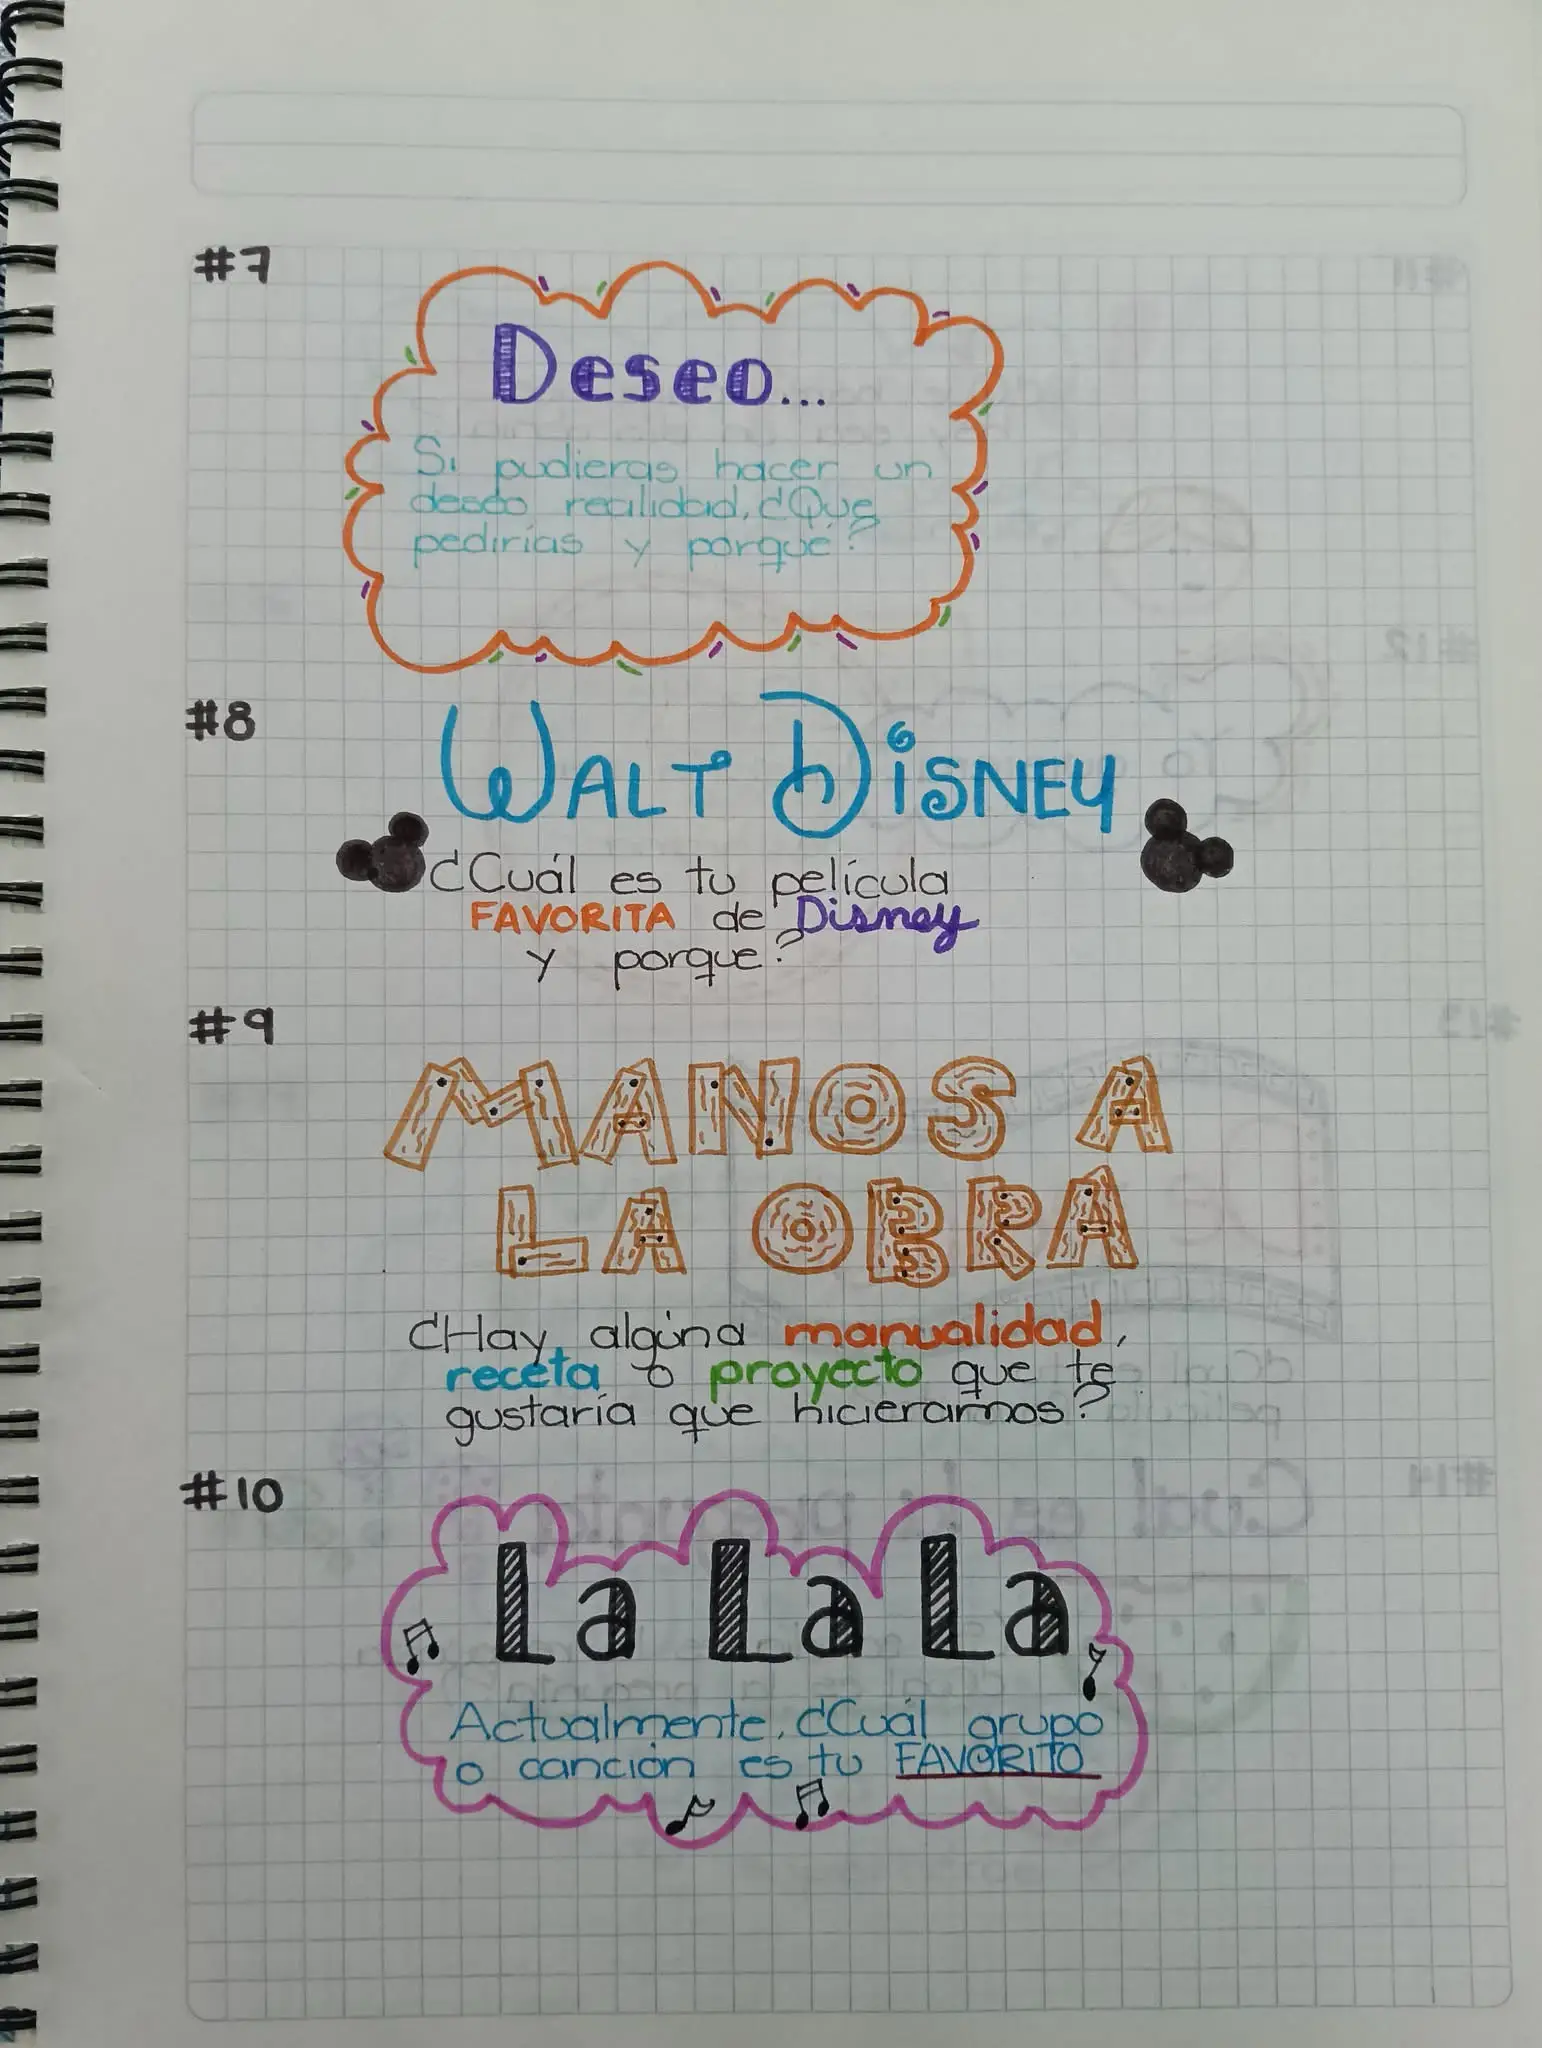 #7
Deseo...
Si pudieras hacer un
deseo realidad, ¿Que
pedirías y porqué?
#8
WALT DiSNEY
¿Cuál es tu película
FAVORITA de Disney
y porque?
#9
MANOS A
LA OBRA
¿Hay algúna manualidad,
receta o proyecto que te
gustaría que hicieramos?
#10
La La La
Actualmente, ¿Cuál grupo
o canción es tu FAVORITO